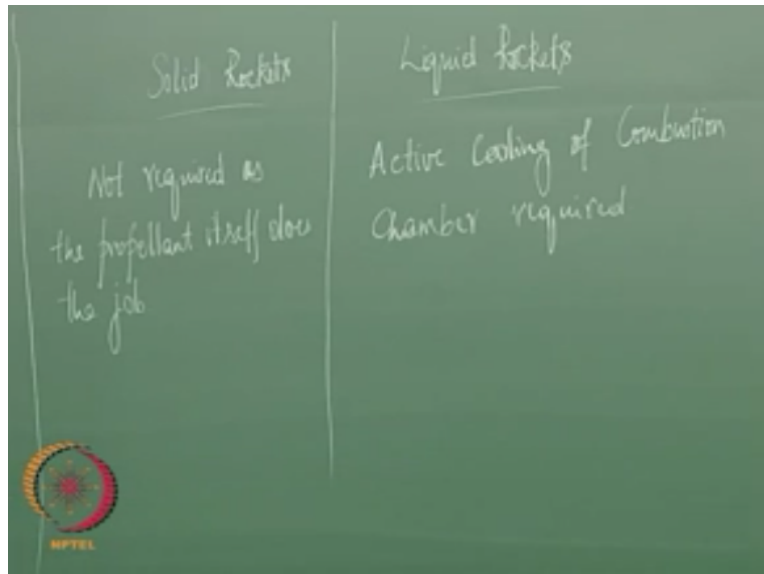 Solid Rockets
Not required as
the propellant itself does
the job
Liquid Rockets
Active Cooling of Combustion
Chamber required
NPTEL